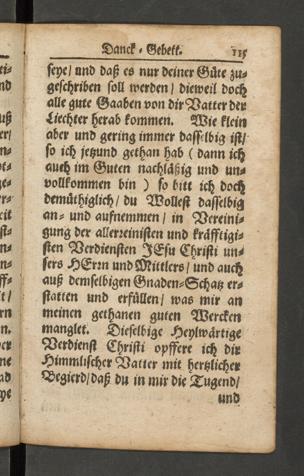 Danck-Gebett. 115
seye/ und daß es nur deiner Güte zu-
geschriben soll werden/ dieweil doch
alle gute Gaaben von dir Vatter der
Liechter herab kommen. Wie klein
aber und gering immer dasselbig ist/
so ich jetzund gethan hab ( dann ich
auch im Guten nachläßig und un-
vollkommen bin ) so bitt ich doch
demüthiglich/ du Wollest dasselbig
an- und aufnemmen/ in Vereini-
gung der allerreinisten und kräfftigi-
sten Verdiensten JEsu Christi un-
sers HErrn und Mittlers/ und auch
auß demselbigen Gnaden-Schatz er-
statten und erfüllen/ was mir an
meinen gethanen guten Wercken
manglet. Dieselbige Heylwärtige
Verdienst Christi opffere ich dir
Himmlischer Vatter mit hertzlicher
Begierd/ daß du in mir die Tugend/
und